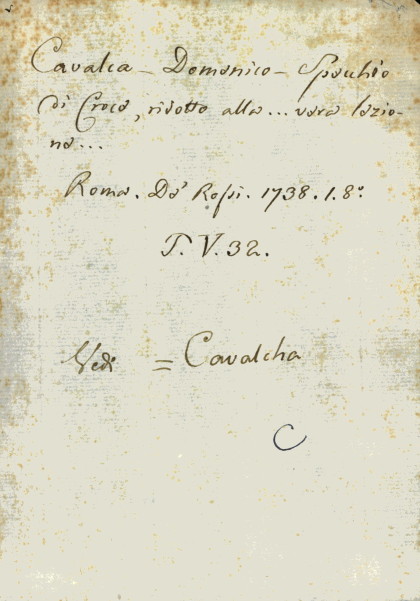 Cavalca - Domenico - Specchio
di Croce, ridotto alla... vera lezio-
ne...
Roma. De' Rossi. 1738. 1. 8.°
T. V. 32.
Vedi = Cavalcha
C